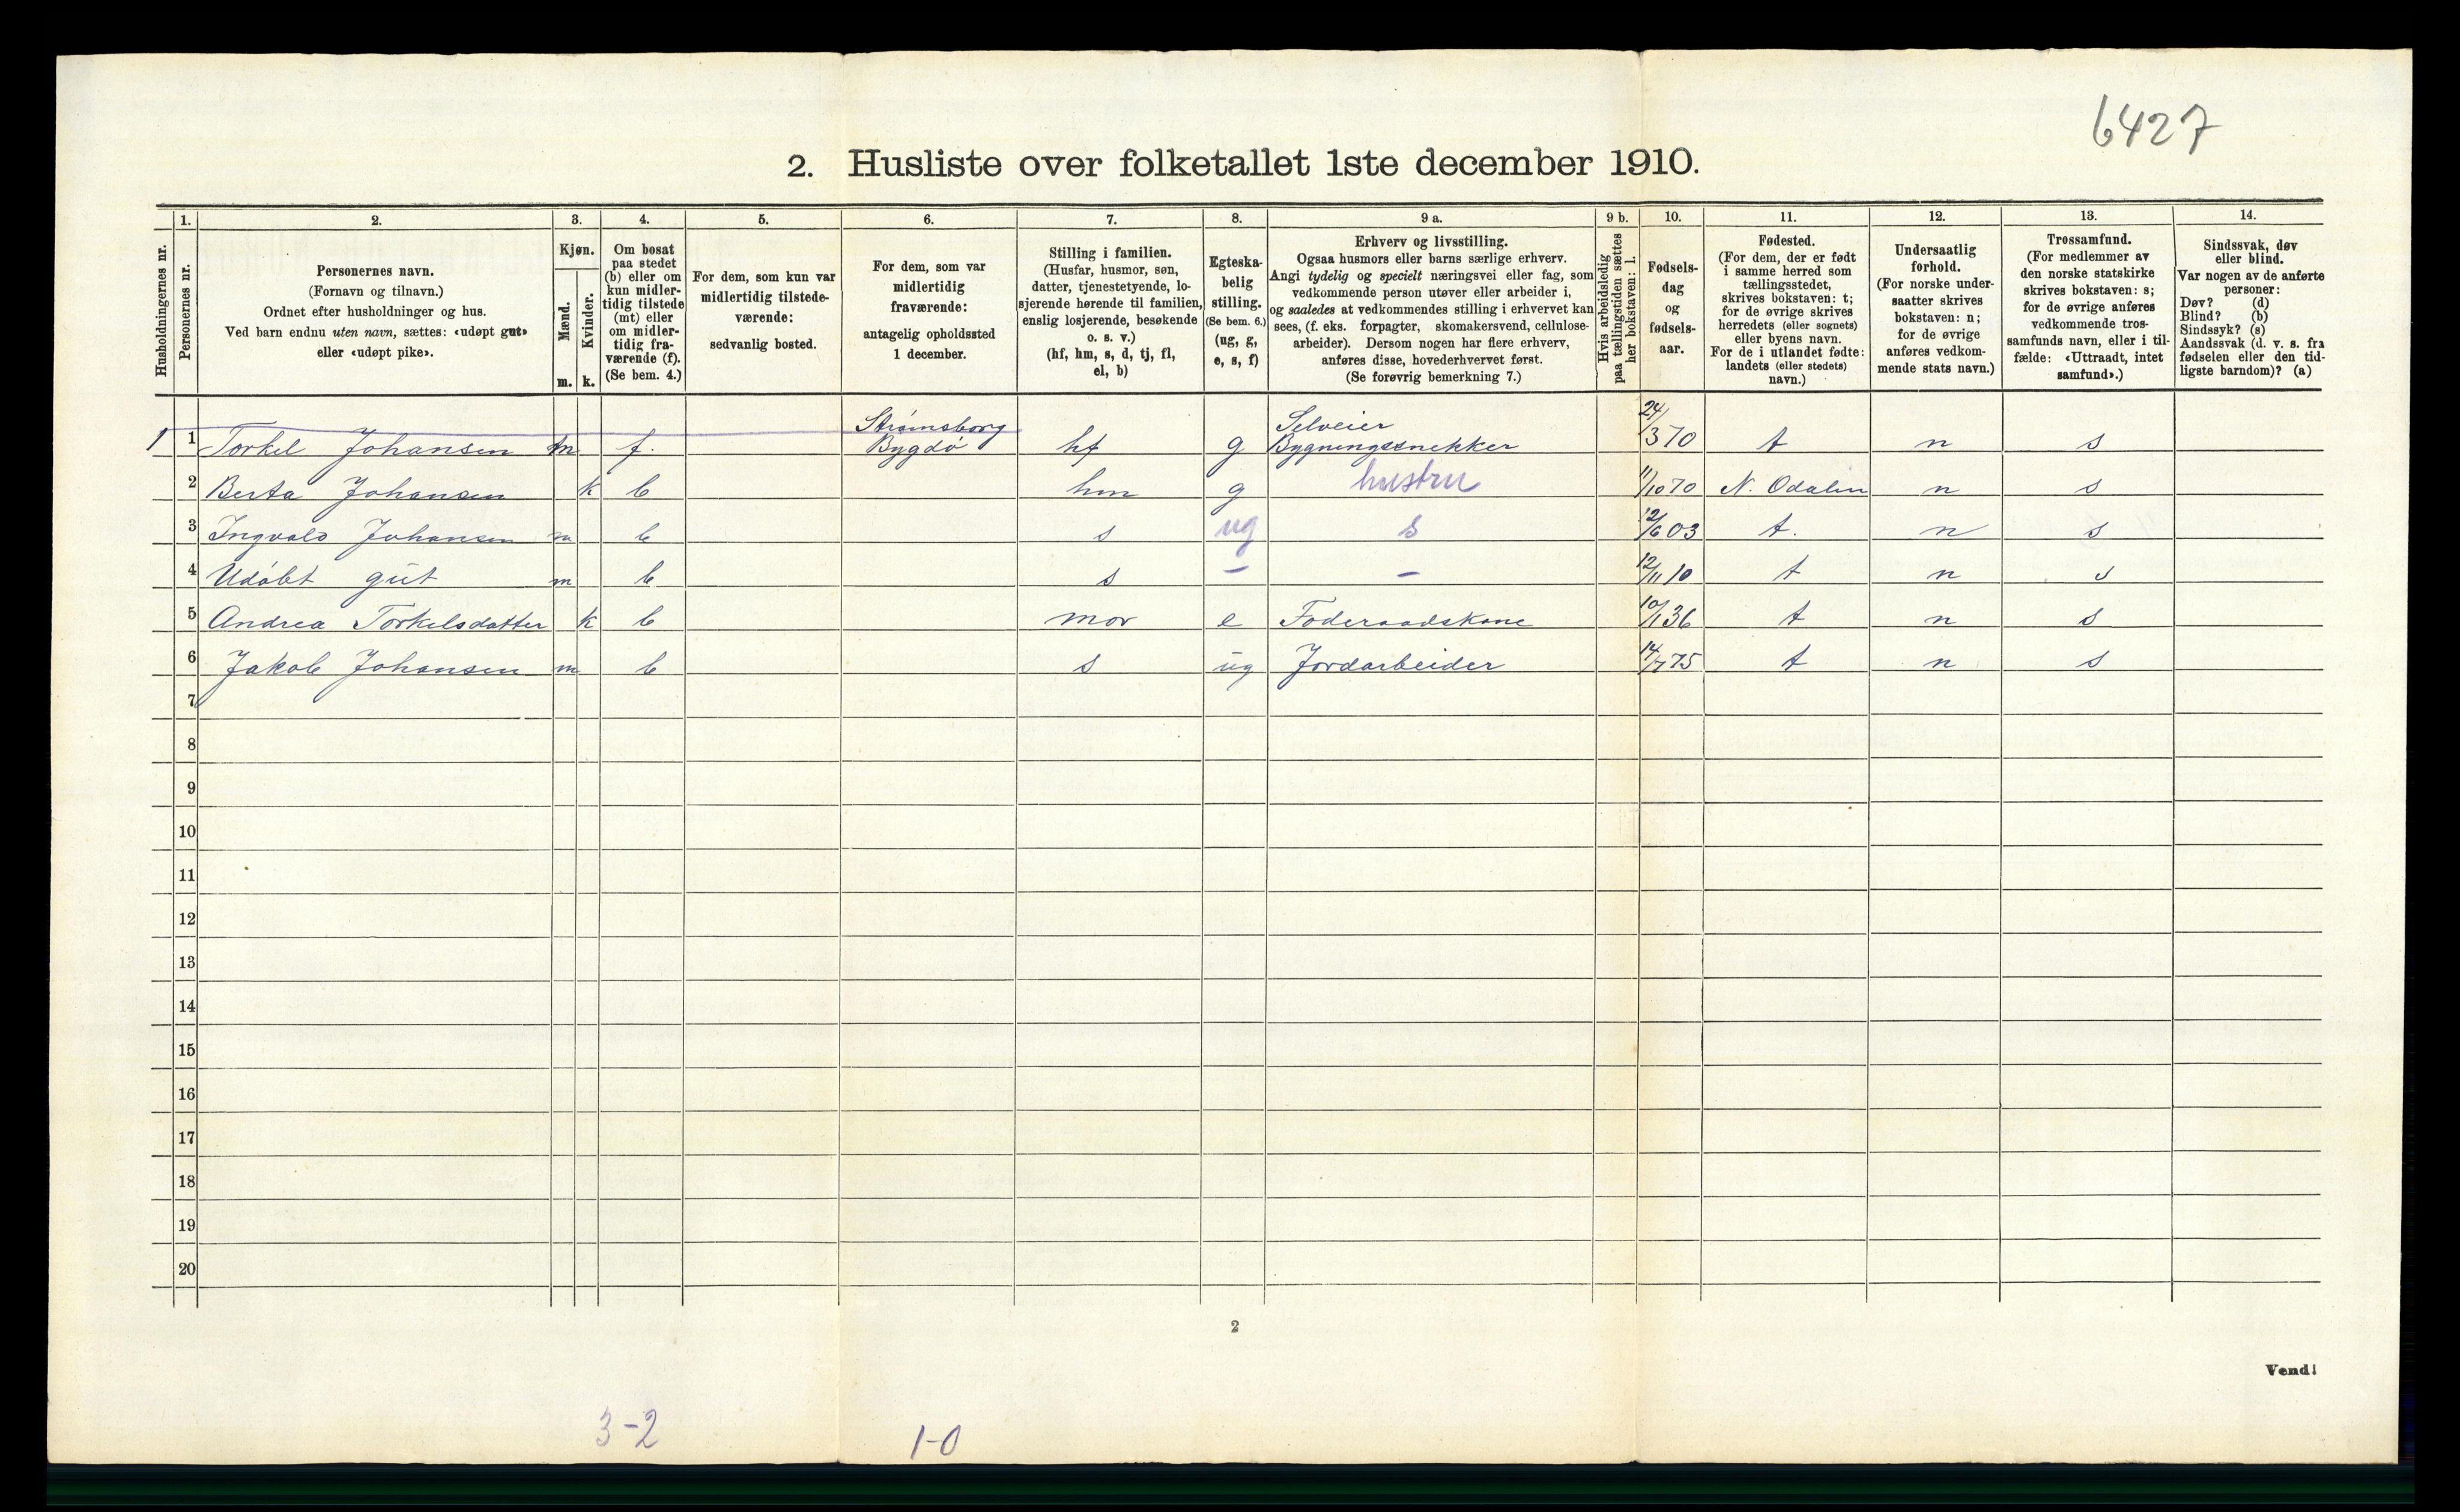 6427
2. Husliste over folketallet 1ste december 1910.
1. 2. 3. 4. 5. 6. 7. 8. 9 a. 9 b. 10. 11. 12. 13. 14.
Husholdningernes nr.
Personernes nr.
Personernes navn.
(Fornavn og tilnavn.)
Ordnet efter husholdninger og hus.
Ved barn endnu uten navn, sættes: «udøpt gut»
eller «udøpt pike».
Kjøn.
Mænd.
Kvinder.
m. k.
Om bosat
paa stedet
(b) eller om
kun midler-
tidig tilstede
(mt) eller
om midler-
tidig fra-
værende (f).
(Se bem. 4.)
For dem, som kun var
midlertidig tilstede-
værende:
sedvanlig bosted.
For dem, som var
midlertidig
fraværende:
antagelig opholdssted
1 december.
Stilling i familien.
(Husfar, husmor, søn,
datter, tjenestetyende, lo-
sjerende hørende til familien,
enslig losjerende, besøkende
o. s. v.)
(hf, hm, s, d, tj, fl,
el, b)
Egteska-
belig
stilling.
(Se bem. 6.)
(ug, g,
e, s, f)
Erhverv og livsstilling.
Ogsaa husmors eller barns særlige erhverv.
Angi tydelig og specielt næringsvei eller fag, som
vedkommende person utøver eller arbeider i,
og saaledes at vedkommendes stilling i erhvervet kan
sees, (f. eks. forpagter, skomakersvend, cellulose-
arbeider). Dersom nogen har flere erhverv,
anføres disse, hovederhvervet først.
(Se forøvrig bemerkning 7.)
Hvis arbeidsledig
paa tællingstiden sættes
her bokstaven: l.
Fødsels-
dag
og
fødsels-
aar.
Fødested.
(For dem, der er født
i samme herred som
tællingsstedet,
skrives bokstaven: t;
for de øvrige skrives
herredets (eller sognets)
eller byens navn.
For de i utlandet fødte:
landets (eller stedets)
navn.)
Undersaatlig
forhold.
(For norske under-
saatter skrives
bokstaven: n;
for de øvrige
anføres vedkom-
mende stats navn.)
Trossamfund.
(For medlemmer av
den norske statskirke
skrives bokstaven: s;
for de øvrige anføres
vedkommende tros-
samfunds navn, eller i til-
fælde: «Uttraadt, intet
samfund».)
Sindssvak, døv
eller blind.
Var nogen av de anførte
personer:
Døv? (d)
Blind? (b)
Sindssyk? (s)
Aandssvak (d. v. s. fra
fødselen eller den tid-
ligste barndom)? (a)
1 1 Torkel Johansen m f. Strømsborg Bygdö hf g Selveier Bygningssnekker 24/3 70 t n s
2 Berta Johansen k b hm g hustru 11/10 70 N. Odalen n s
3 Ingvald Johansen m b s ug s 12/6 03 t. n s
4 Udöbt gut m b s – – 12/11 10 t n s
5 Andrea Torkelsdatter k b mor e Föderaadskone 10/1 36 t n s
6 Jakob Johansen m b s ug Jordarbeider 14/7 75 t n s
7
8
9
10
11
12
13
14
15
16
17
18
19
20
2
Vend!
3-2 1-0